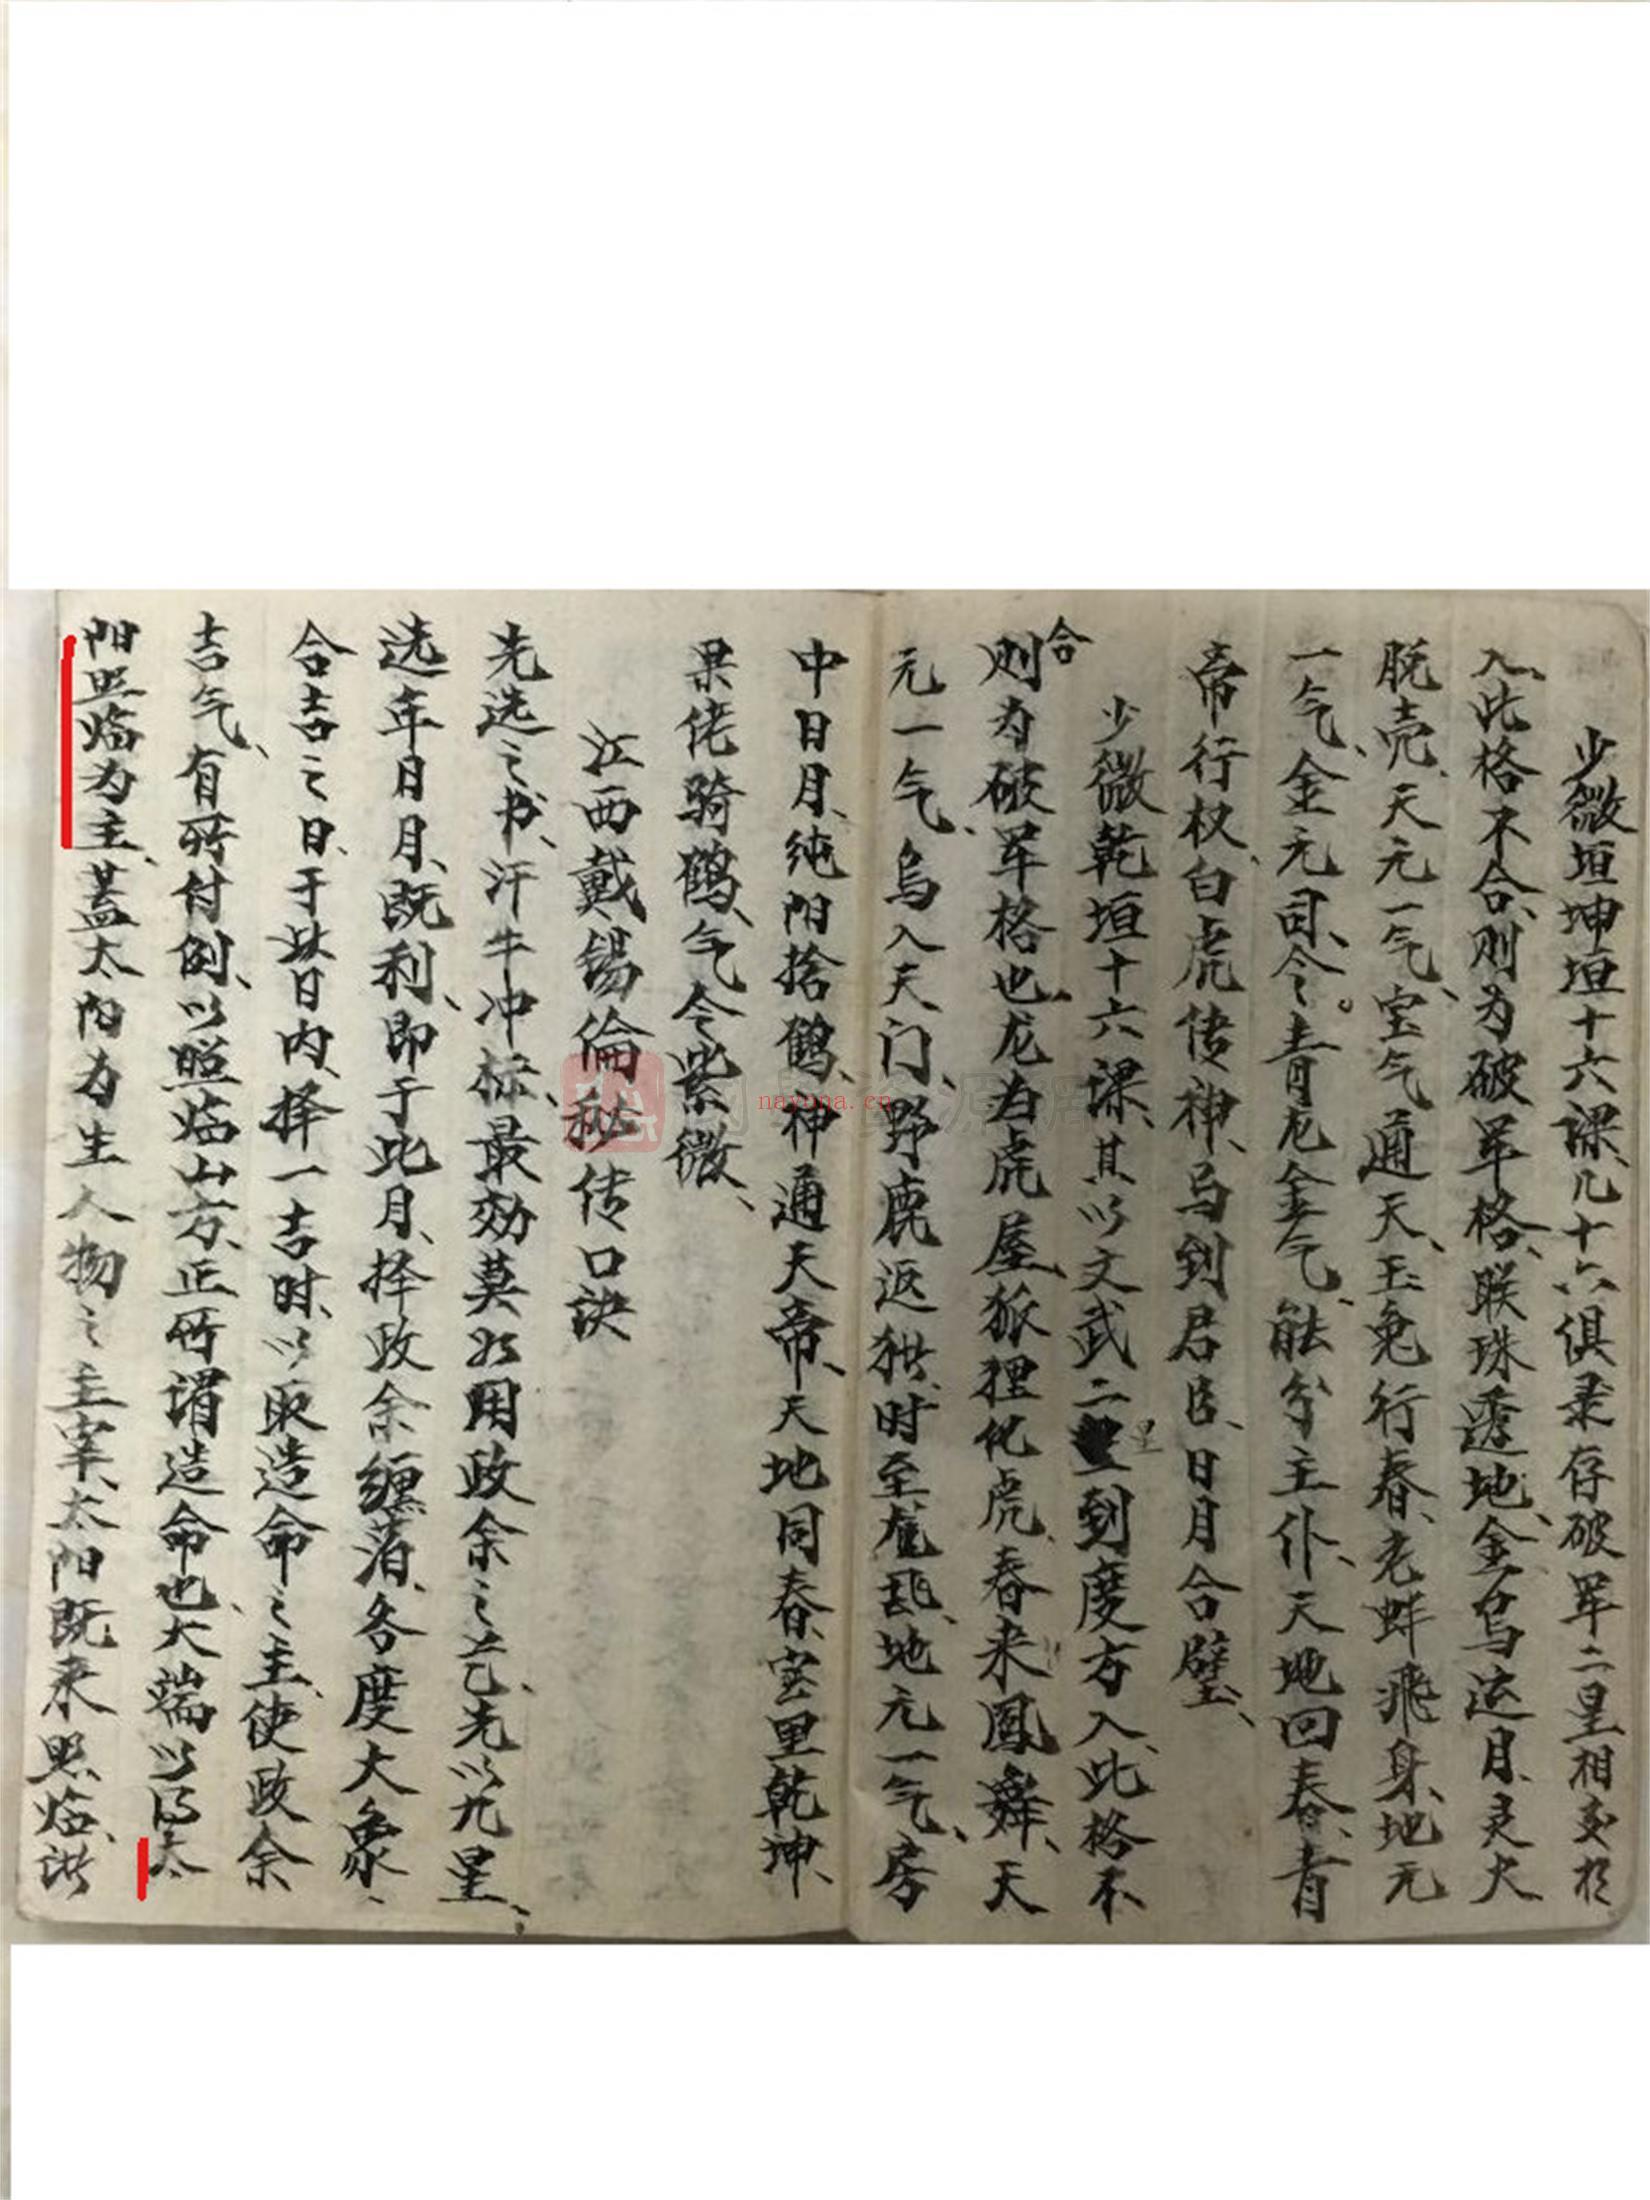 少微垣坤垣十六课、凡十六俱录存破军二星相交于
入、此格不合、则为破军格、联珠透地、金乌运月、灵犬
脱壳、天元一气、宝气通天、玉兔行春、老蚌飛身、地元
一气、金元司令、青龙金气、能分主仆、天地回春、青
帝行权、白虎传神、马到君臣、日月合璧、
少微乾垣十六课、其以文武二星到度方入、此格不
合
则为破军格也、龙为虎屋、狐狸化虎、春来鳳舞、天
元一气、乌入天门、野鹿返 时至 地元一气、房
中日月、纯阳捨鹤、神通天帝、天地同春、室里乾坤、
果佬骑鹤、气令紫微、
江西戴锡倫秘传口诀
先选之书、汗牛冲标、最効莫如用政余之艺、先以九星、
选年月月、既利、即于此月、择政余缠落、各度大象、
合吉之日、于此日内、择一吉时、以取造命之主、使政余
吉气、有所付例、以照临山方、正所谓造命也、大端以得太
阳照临为主、蓋太阳为生人物之主宰、太阳既来照临、
nayona.cn